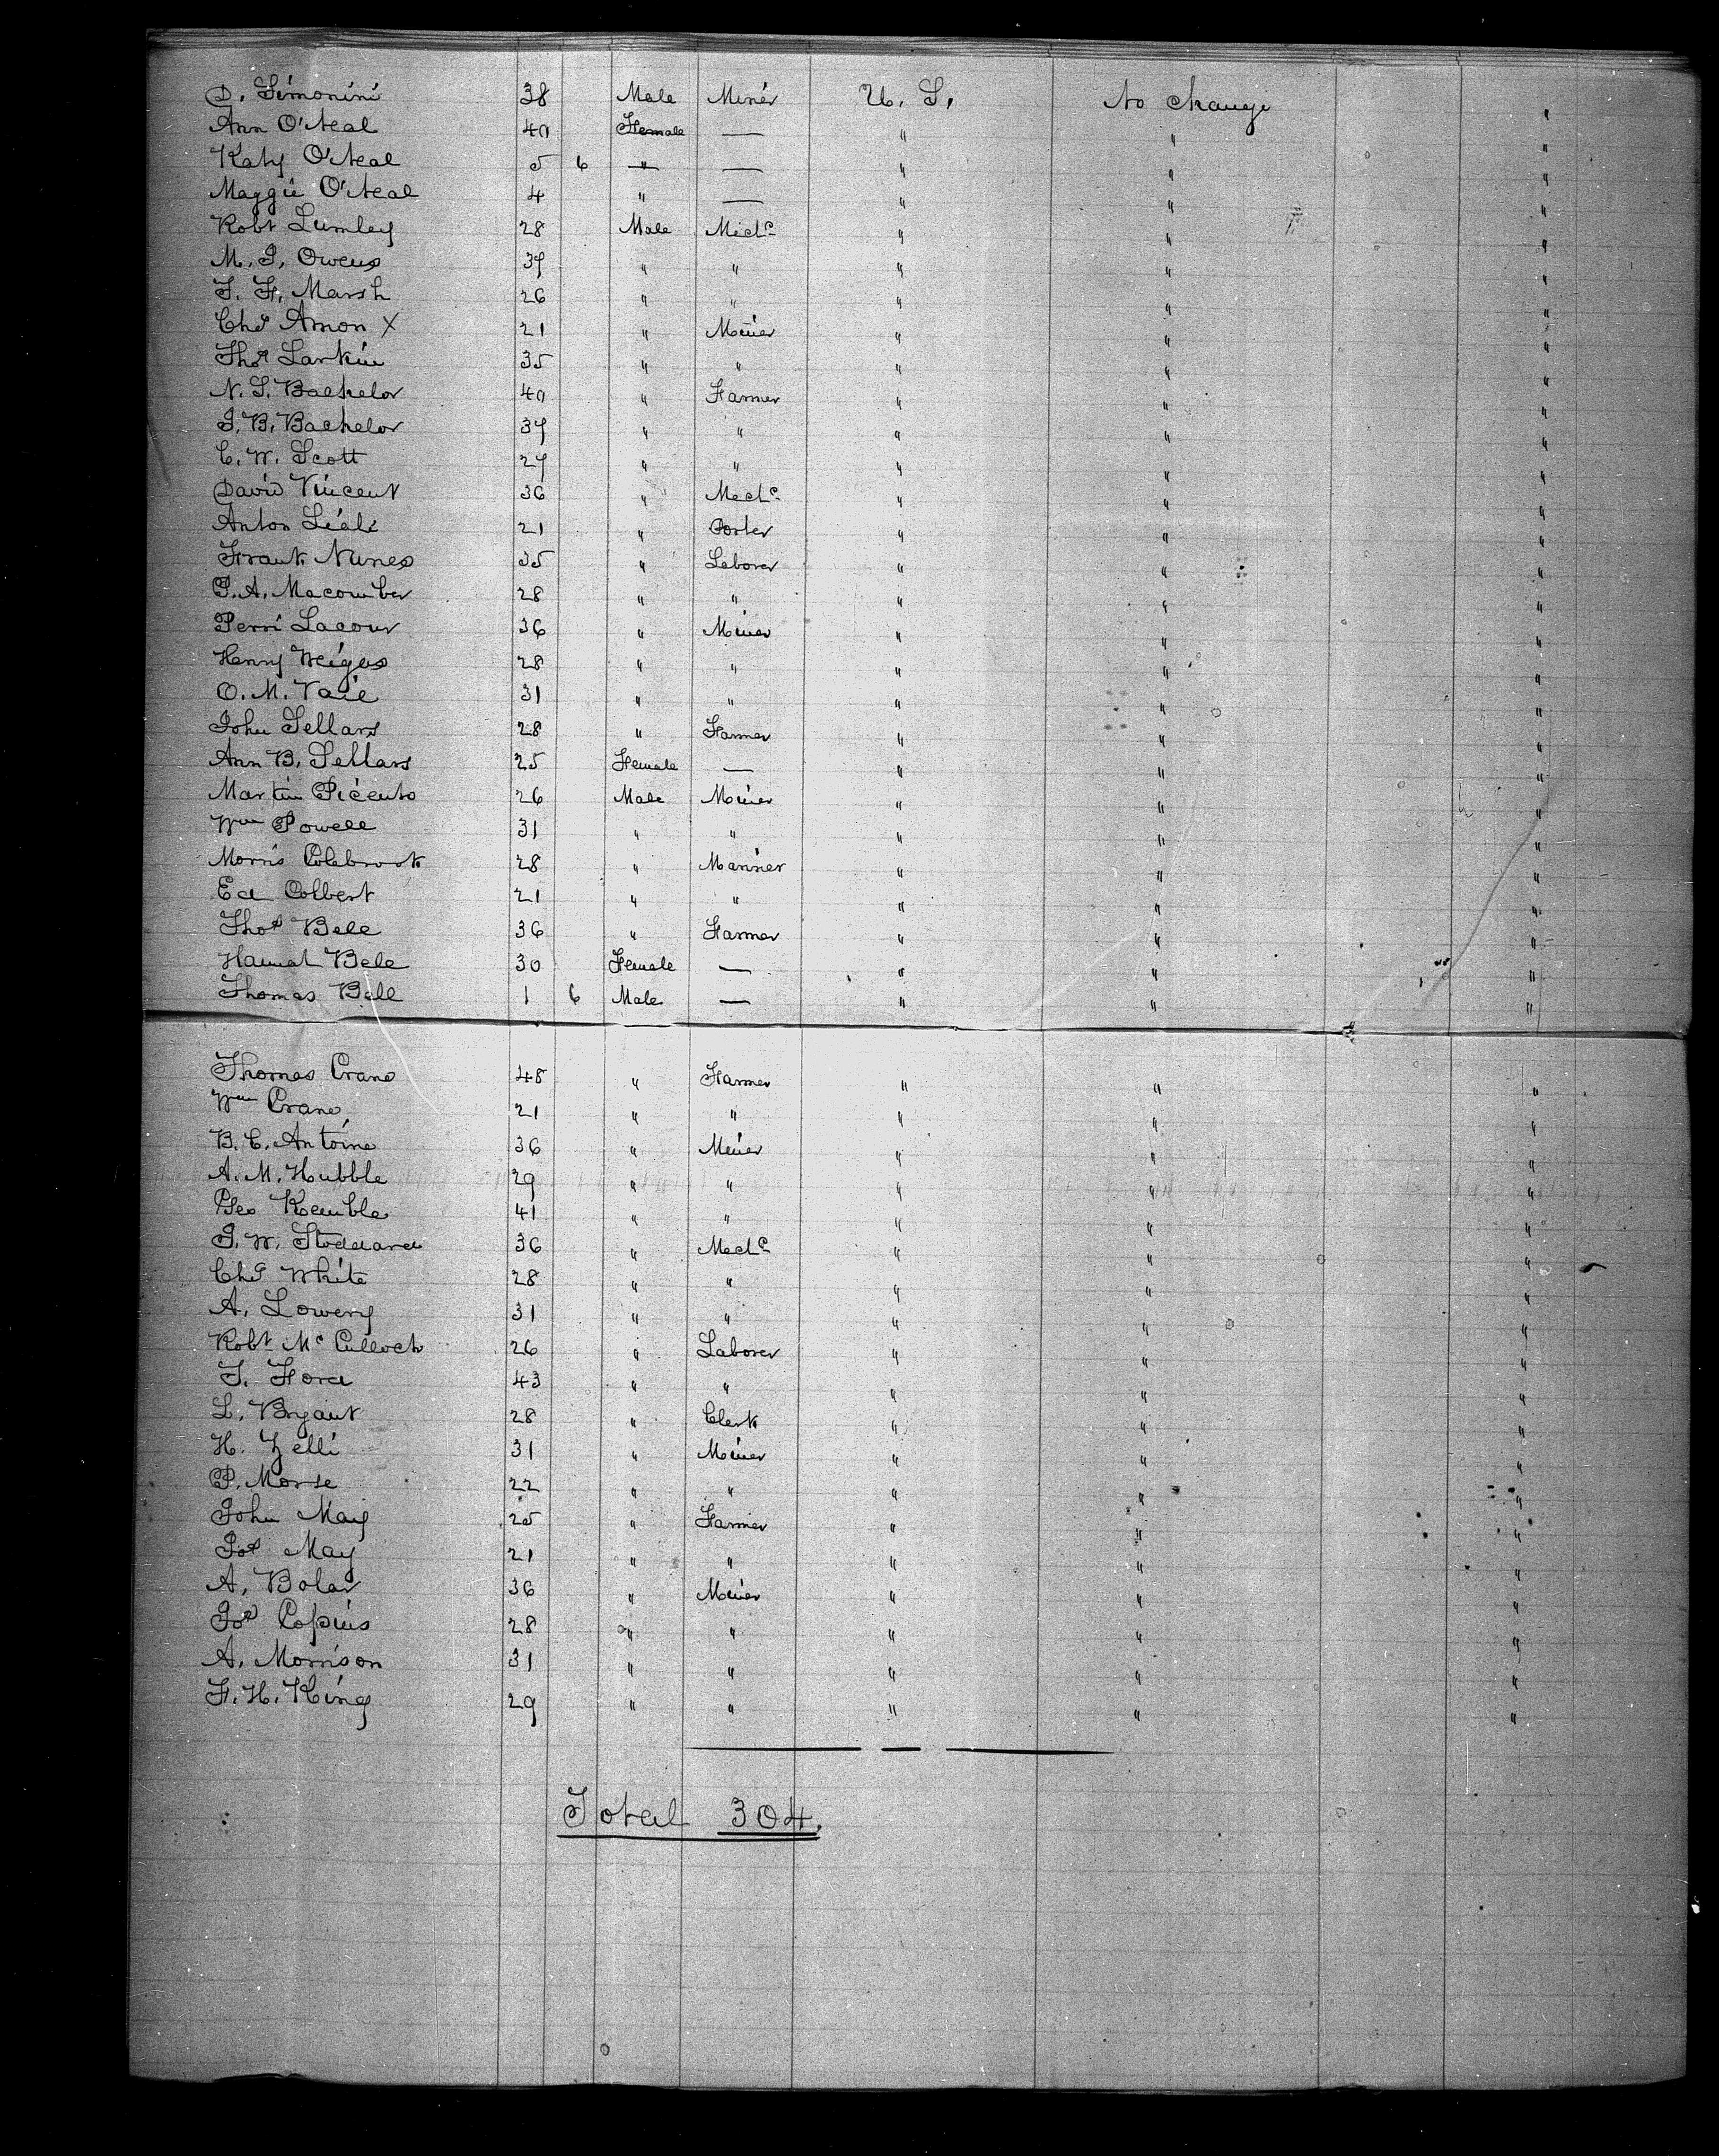 D. Simonini 38 Male Miner U. S. No change "
Ann O'Neal 40 Female — " " "
Katy O'Neal 5 6 " — " " "
Maggie O'Neal 4 " — " " "
Robt Lumley 28 Male Mechc " " "
M. I. Owens 37 " " " " "
T. F. Marsh 26 " " " " "
Chs Amon X 21 " Miner " " "
Thos Larkin 35 " " " " "
N. S. Bachelor 40 " Farmer " " "
J. B. Bachelor 37 " " " " "
C. W. Scott 27 " " " " "
David Vincent 36 " Mechc " " "
Anton Liali 21 " Porter " " "
Frank Nunes 35 " Laborer " " "
P. A. Macomber 28 " " " " "
Perri Lacour 36 " Miner " " "
Henry Meigs 28 " " " " "
O. M. Vail 31 " " " " "
John Sellars 28 " Farmer " " "
Ann B. Sellars 25 Female — " " "
Martin Picento 26 Male Miner " " "
Wm Powell 31 " " " " "
Morris Colebrook 28 " Mariner " " "
Ed Colbert 21 " " " " "
Thos Bell 36 " Farmer " " "
Hannah Bell 30 Female — " " "
Thomas Bell 1 6 Male — " " "
Thomas Crane 48 " Farmer " " "
Wm Crane 21 " " " " "
B. C. Antoine 36 " Miner " " "
A. M. Hubble 29 " " " " "
Geo Kemble 41 " " " " "
J. W. Stoddard 36 " Mechc " " "
Chs White 28 " " " " "
A. Lowery 31 " " " " "
Robt McCulloch 26 " Laborer " " "
T. Ford 43 " " " " "
L. Bryant 28 " Clerk " " "
H. Zelli 31 " Miner " " "
P. Morse 22 " " " " "
John May 25 " Farmer " " "
Jos May 21 " " " " "
A. Bolar 36 " Miner " " "
Jos Copins 28 " " " " "
A. Morrison 31 " " " " "
F. H. King 29 " " " " "
Total 304.